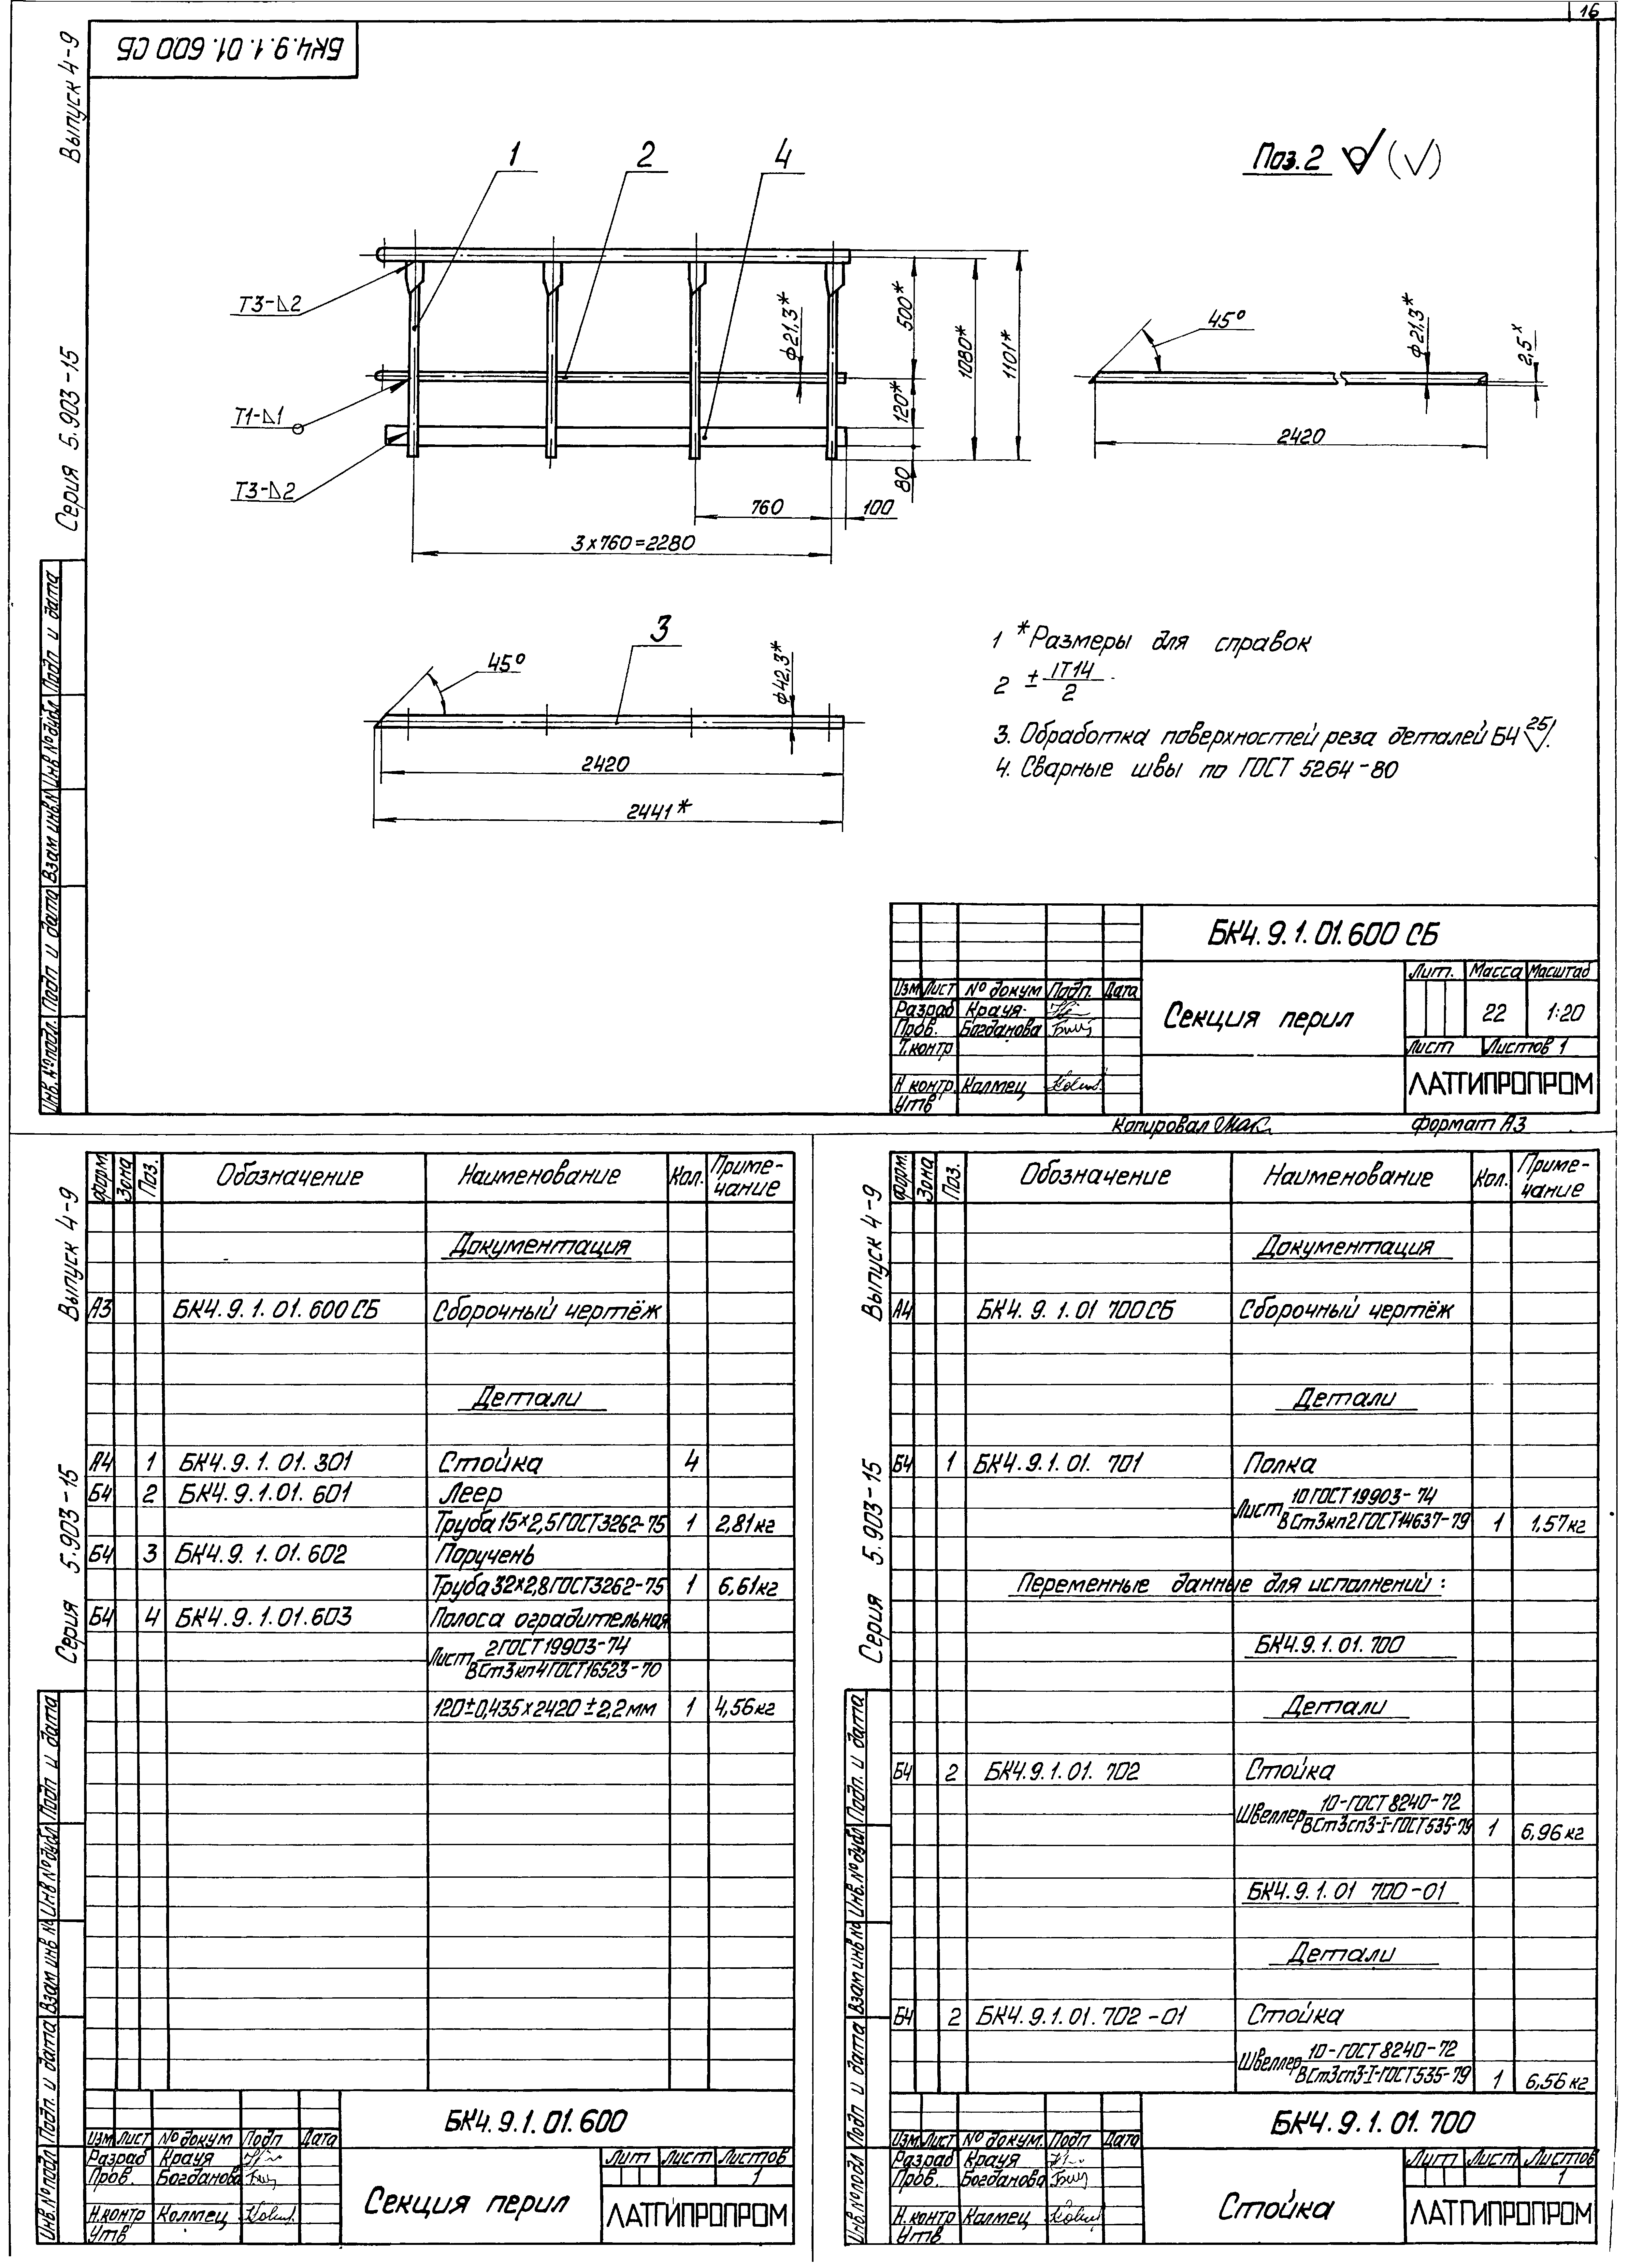 16
БК4.9.1.01.600 СБ
Выпуск 4-9
Серия 5.903-15
Инв.№подл. Подп и дата Взам инв.№ Инв №дубл Подп и дата
1
2
4
Поз.2 (√)
Т3-⊿2
Т1-⊿1
Т3-⊿2
ф21,3*
500*
120*
80
1080*
1101*
760
100
3х760=2280
45°
ф21,3*
2,5х
2420
3
45°
ф42,3*
2420
2441*
1 *Размеры для справок
2 ± IT14/2
3. Обработка поверхностей реза деталей БЧ 25/.
4. Сварные швы по ГОСТ 5264-80
БК4.9.1.01.600 СБ
Лит. Масса Масштаб
Изм Лист № докум Подп. Дата
Разраб Крауя
Пров. Богданова
Т.контр
Н контр. Калмец
Утв
Секция перил
22 1:20
Лист Листов 1
ЛАТГИПРОПРОМ
Копировал Формат А3
Выпуск 4-9
Серия 5.903-15
Инв.№подл Подп. и дата Взам инв № Инв №дубл Подп и дата
Форм. Зона Поз. Обозначение Наименование Кол. Приме-
чание
Документация
А3 БК4.9.1.01.600СБ Сборочный чертёж
Детали
А4 1 БК4.9.1.01.301 Стойка 4
БЧ 2 БК4.9.1.01.601 Леер
Труба 15х2,5 ГОСТ3262-75 1 2,81кг
БЧ 3 БК4.9.1.01.602 Поручень
Труба 32х2,8 ГОСТ3262-75 1 6,61кг
БЧ 4 БК4.9.1.01.603 Полоса оградительная
2 ГОСТ 19903-74
Лист
ВСт3кп4 ГОСТ16523-70
120±0,435х2420±2,2мм 1 4,56кг
БК4.9.1.01.600
Изм Лист № докум Подп Дата
Разраб Крауя
Пров. Богданова
Н.контр Колмец
Утв
Секция перил
Лит Лист Листов
1
ЛАТГИПРОПРОМ
Выпуск 4-9
Серия 5.903-15
Инв.№подл Подп и дата Взам инв № Инв.№дубл Подп. и дата
Форм. Зона Поз. Обозначение Наименование Кол. Приме-
чание
Документация
А4 БК4.9.1.01 700СБ Сборочный чертёж
Детали
БЧ 1 БК4.9.1.01. 701 Полка
10 ГОСТ 19903-74
Лист
ВСт3кп2 ГОСТ14637-79 1 1,57кг
Переменные данные для исполнений:
БК4.9.1.01.700
Детали
БЧ 2 БК4.9.1.01. 702 Стойка
10-ГОСТ 8240-72
Швеллер
ВСт3сп3-I-ГОСТ535-79 1 6,96кг
БК4.9.1.01 700-01
Детали
БЧ 2 БК4.9.1.01.702-01 Стойка
10-ГОСТ 8240-72
Швеллер
ВСт3сп3-I-ГОСТ535-79 1 6,56кг
БК4.9.1.01.700
Изм Лист № докум. Подп Дата
Разраб Крауя
Пров. Богданова
Н.контр Калмец
Утв
Стойка
Лит Лист Листов
1
ЛАТГИПРОПРОМ